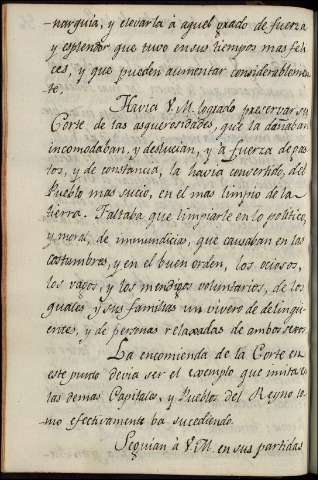 narquia, y elevarla à aquel grado de fuerza
y esplendor que tuvo en sus tiempos mas feli-
ces, y que pueden aumentar considerablemen-
te.
Havia V.M. logrado preservar su
Corte de las asquerosidades, que la dañaban
incomodaban, y deslucian, y à fuerza de gas-
tos, y de constancia, la havia convertido, del
Pueblo mas sucio, en el mas limpio de la
tierra. Faltaba que limpiarle en lo politico,
y moral, de inmundicias, que causaban en las
costumbres, y en el buen orden, los ociosos,
los vagos, y los mendigos voluntarios, de los
quales y sus familias un vivero de delinqu-
entes, y de personas relaxadas de ambos sexos.
La encomienda de la Corte en
este punto devia ser el exemplo que imita
las demas Capitales, y Pueblos del Reyno co-
mo efectivamente ba sucediendo.
Seguian à V.M. en sus partidas